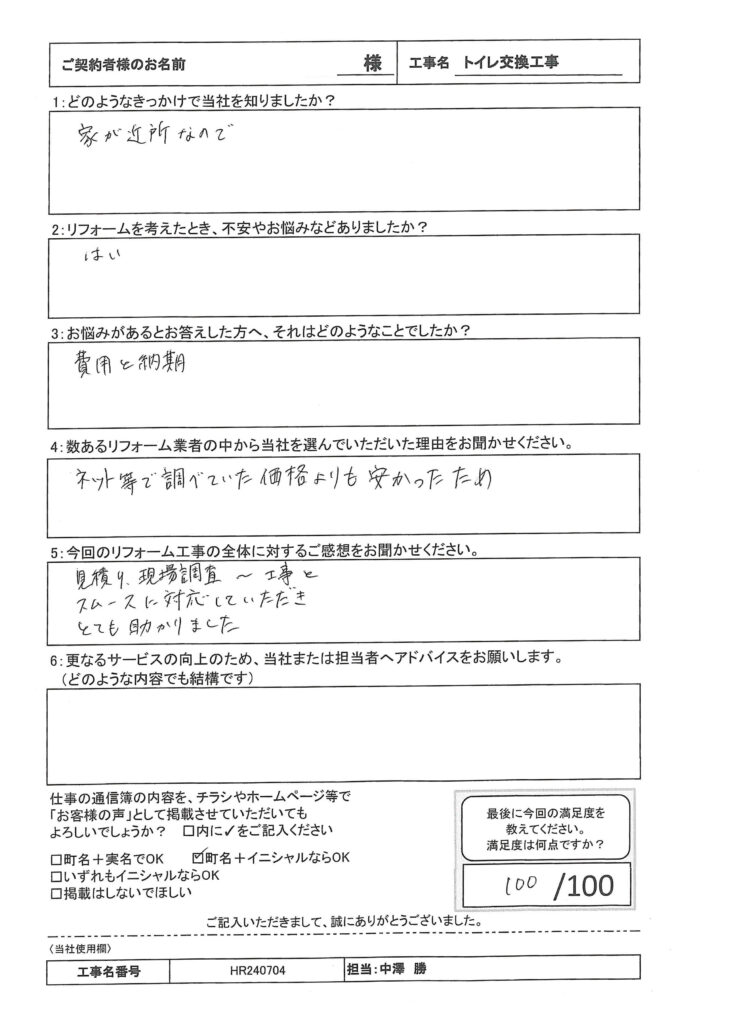 ご契約者様のお名前 様 工事名 トイレ交換工事
1:どのようなきっかけで当社を知りましたか?
家が近所なので
2:リフォームを考えたとき、不安やお悩みなどありましたか?
はい
3:お悩みがあるとお答えした方へ、それはどのようなことでしたか?
費用と納期
4:数あるリフォーム業者の中から当社を選んでいただいた理由をお聞かせください。
ネット等で調べていた価格よりも安かったため
5:今回のリフォーム工事の全体に対するご感想をお聞かせください。
見積り、現場調査〜工事と
スムースに対応していただき
とても助かりました
6:更なるサービスの向上のため、当社または担当者へアドバイスをお願いします。
(どのような内容でも結構です)
仕事の通信簿の内容を、チラシやホームページ等で
「お客様の声」として掲載させていただいても
よろしいでしょうか? □内に✓をご記入ください
□町名+実名でOK ☑町名+イニシャルならOK
□いずれもイニシャルならOK
□掲載はしないでほしい
最後に今回の満足度を
教えてください。
満足度は何点ですか?
100 /100
ご記入いただきまして、誠にありがとうございました。
〈当社使用欄〉
工事名番号 HR240704 担当:中澤 勝